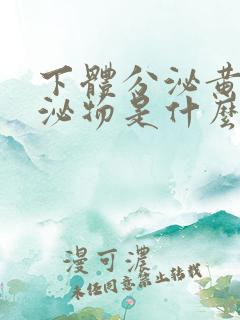 下體分泌黃
泌物是什麼
漫可濃
未经同意禁止转载